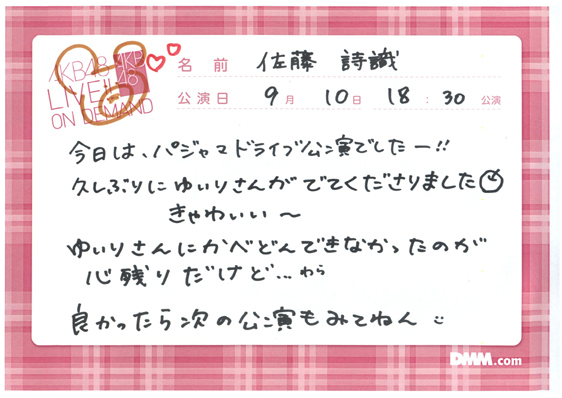 AKB48
LIVE!!
ON DEMAND
名前 佐藤 詩識
公演日 9月 10日 18:30 公演
今日は、パジャマドライブ公演でしたー!!
久しぶりにゆいりさんがでてくださりました
きゃわいい〜
ゆいりさんにかべどんできなかったのが
心残りだけど... わら
良かったら次の公演もみてねん
DMM.com